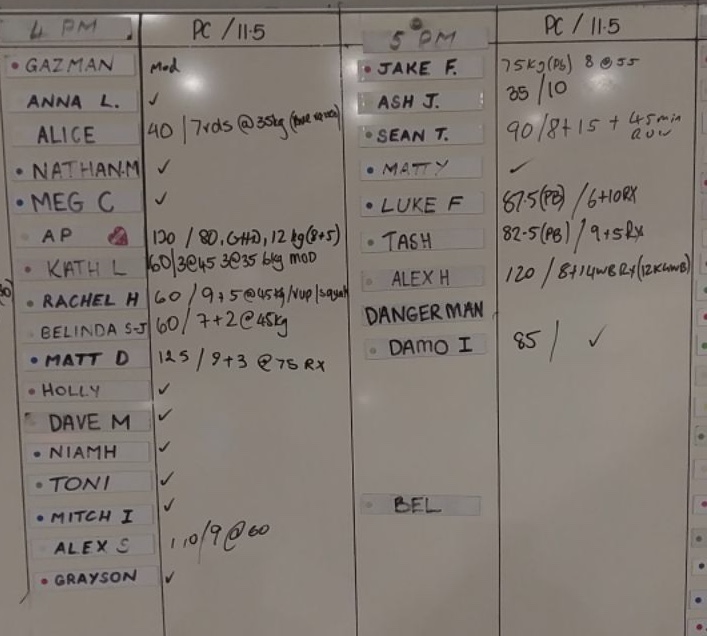 4 PM PC / 11.5
GAZMAN Mod
ANNA L. ✓
ALICE 40 / 7rds @ 35kg
NATHAN.M ✓
MEG C ✓
AP 120 / 80, GHD, 12 kg (8+5)
KATH L 60 / 3@45 3@35 6kg MOD
RACHEL H 60 / 9+5 @ 45kg /
BELINDA S-J 60 / 7+2 @ 45kg
MATT D 125 / 9+3 @ 75 RX
HOLLY ✓
DAVE M ✓
NIAMH ✓
TONI ✓
MITCH I ✓
ALEX S 110/9 @ 60
GRAYSON ✓
5 PM PC / 11.5
JAKE F. 75kg (Pb) 8 @ 55
ASH J. 35 / 10
SEAN T. 90 / 8+15 + 45min
RUN
MATTY ✓
LUKE F 87.5 (PB) / 6+10 RX
TASH 82.5 (PB) / 9+5 RX
ALEX H 120 / 8+14WB RX
DANGERMAN
DAMO I 85 / ✓
BEL